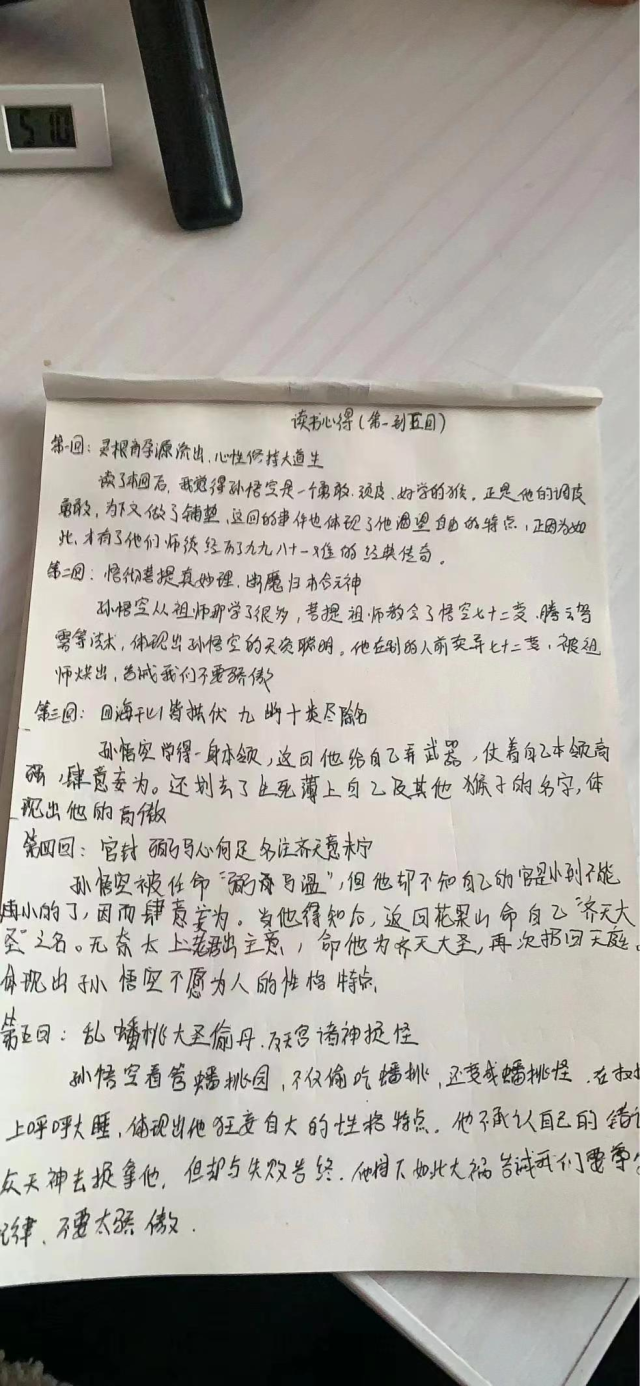 5 10
读书心得(第一到五回)
第一回:灵根育孕源流出、心性修持大道生
读了本回后,我觉得孙悟空是一个勇敢、顽皮、好学的猴。正是他的调皮
勇敢,为下文做了铺垫,这回的事件也体现了他渴望自由的特点,正因为如
此,才有了他们师徒经历了九九八十一难的经典传奇。
第二回:悟彻菩提真妙理、断魔归本合元神
孙悟空从祖师那学了很多,菩提祖师教会了悟空七十二变、腾云驾
雾等法术,体现出孙悟空的天资聪明。他在别的人前卖弄七十二变,被祖
师烘出,告诫我们不要骄傲
第三回:四海千山皆拱伏 九幽十类尽除名
孙悟空学得一身本领,这回他给自己弄武器,仗着自己本领高
强,肆意妄为。还划去了生死薄上自己及其他猴子的名字,体
现出他的高傲
第四回:官封弼马心何足 名注齐天意未宁
孙悟空被任命“弼马温”,但他却不知自己的官是小到不能
再小的了,因而肆意妄为。当他得知后,返回花果山命自己“齐天大
圣”之名。无奈太上老君出主意,命他为齐天大圣,再次招回天庭。
体现出孙悟空不愿为人的性格特点
第五回:乱蟠桃大圣偷丹、反天宫诸神捉怪
孙悟空看管蟠桃园,不仅偷吃蟠桃,还变成蟠桃怪、在树
上呼呼大睡,体现出他狂妄自大的性格特点。他不承认自己的错
众天神去捉拿他,但却与失败告终、他相下如此大祸告诫我们要
纪律、不要太骄傲.